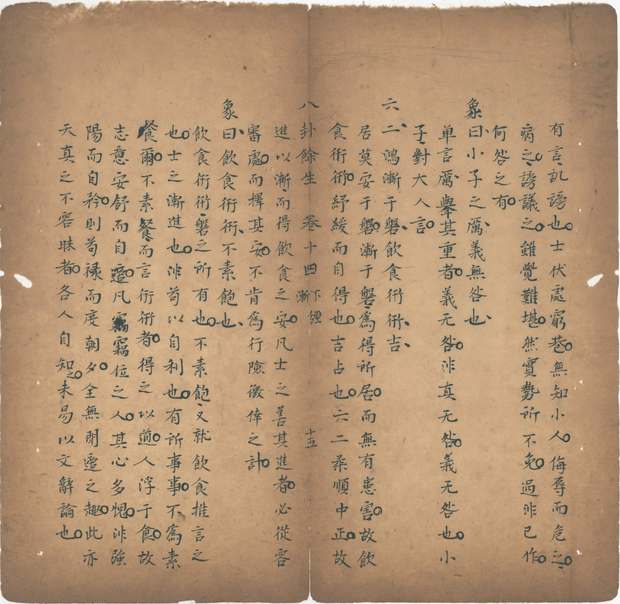 有言乱語也士伏處窮巷無知小人侮辱而危之
病之謗議之雖覺難堪然實勢所不免過非已作
何咎之有
象曰小子之厲義無咎也
單言厲舉其重者義无咎非真无咎義无咎也小
子對大人言
六二鴻漸于磐飲食衎衎吉
居莫安于磐漸于磐為得所居而無有患害故飲
食衎衎紓緩而自得也吉占也六二柔順中正故
八卦餘生 卷十四 下經 漸 十五
進以漸而得飲食之安凡士之善其進者必從容
審處而擇其安不肯為行險徼倖之計
象曰飲食衎衎不素飽也
飲食衎衎磐之所有也不素飽又就飲食推言之
也士之漸進也非苟以自利也有所事事不為素
餐爾不素餐而言衎衎者得之以道人浮于食故
志意安舒而自遷凡竊位之人其心多愧非強
陽而自矜則苟祿而度朝夕全無閒遷之趣此亦
天真之不容昧者各人自知之未易以文辭論也